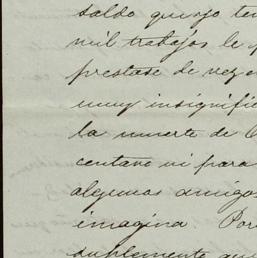 saldo que yo ten
mil trabajos le p
prestase de vez e
muy insignifi
la muerte de C
centavo ni para
algunos amigos
imagina Por
suplemente que